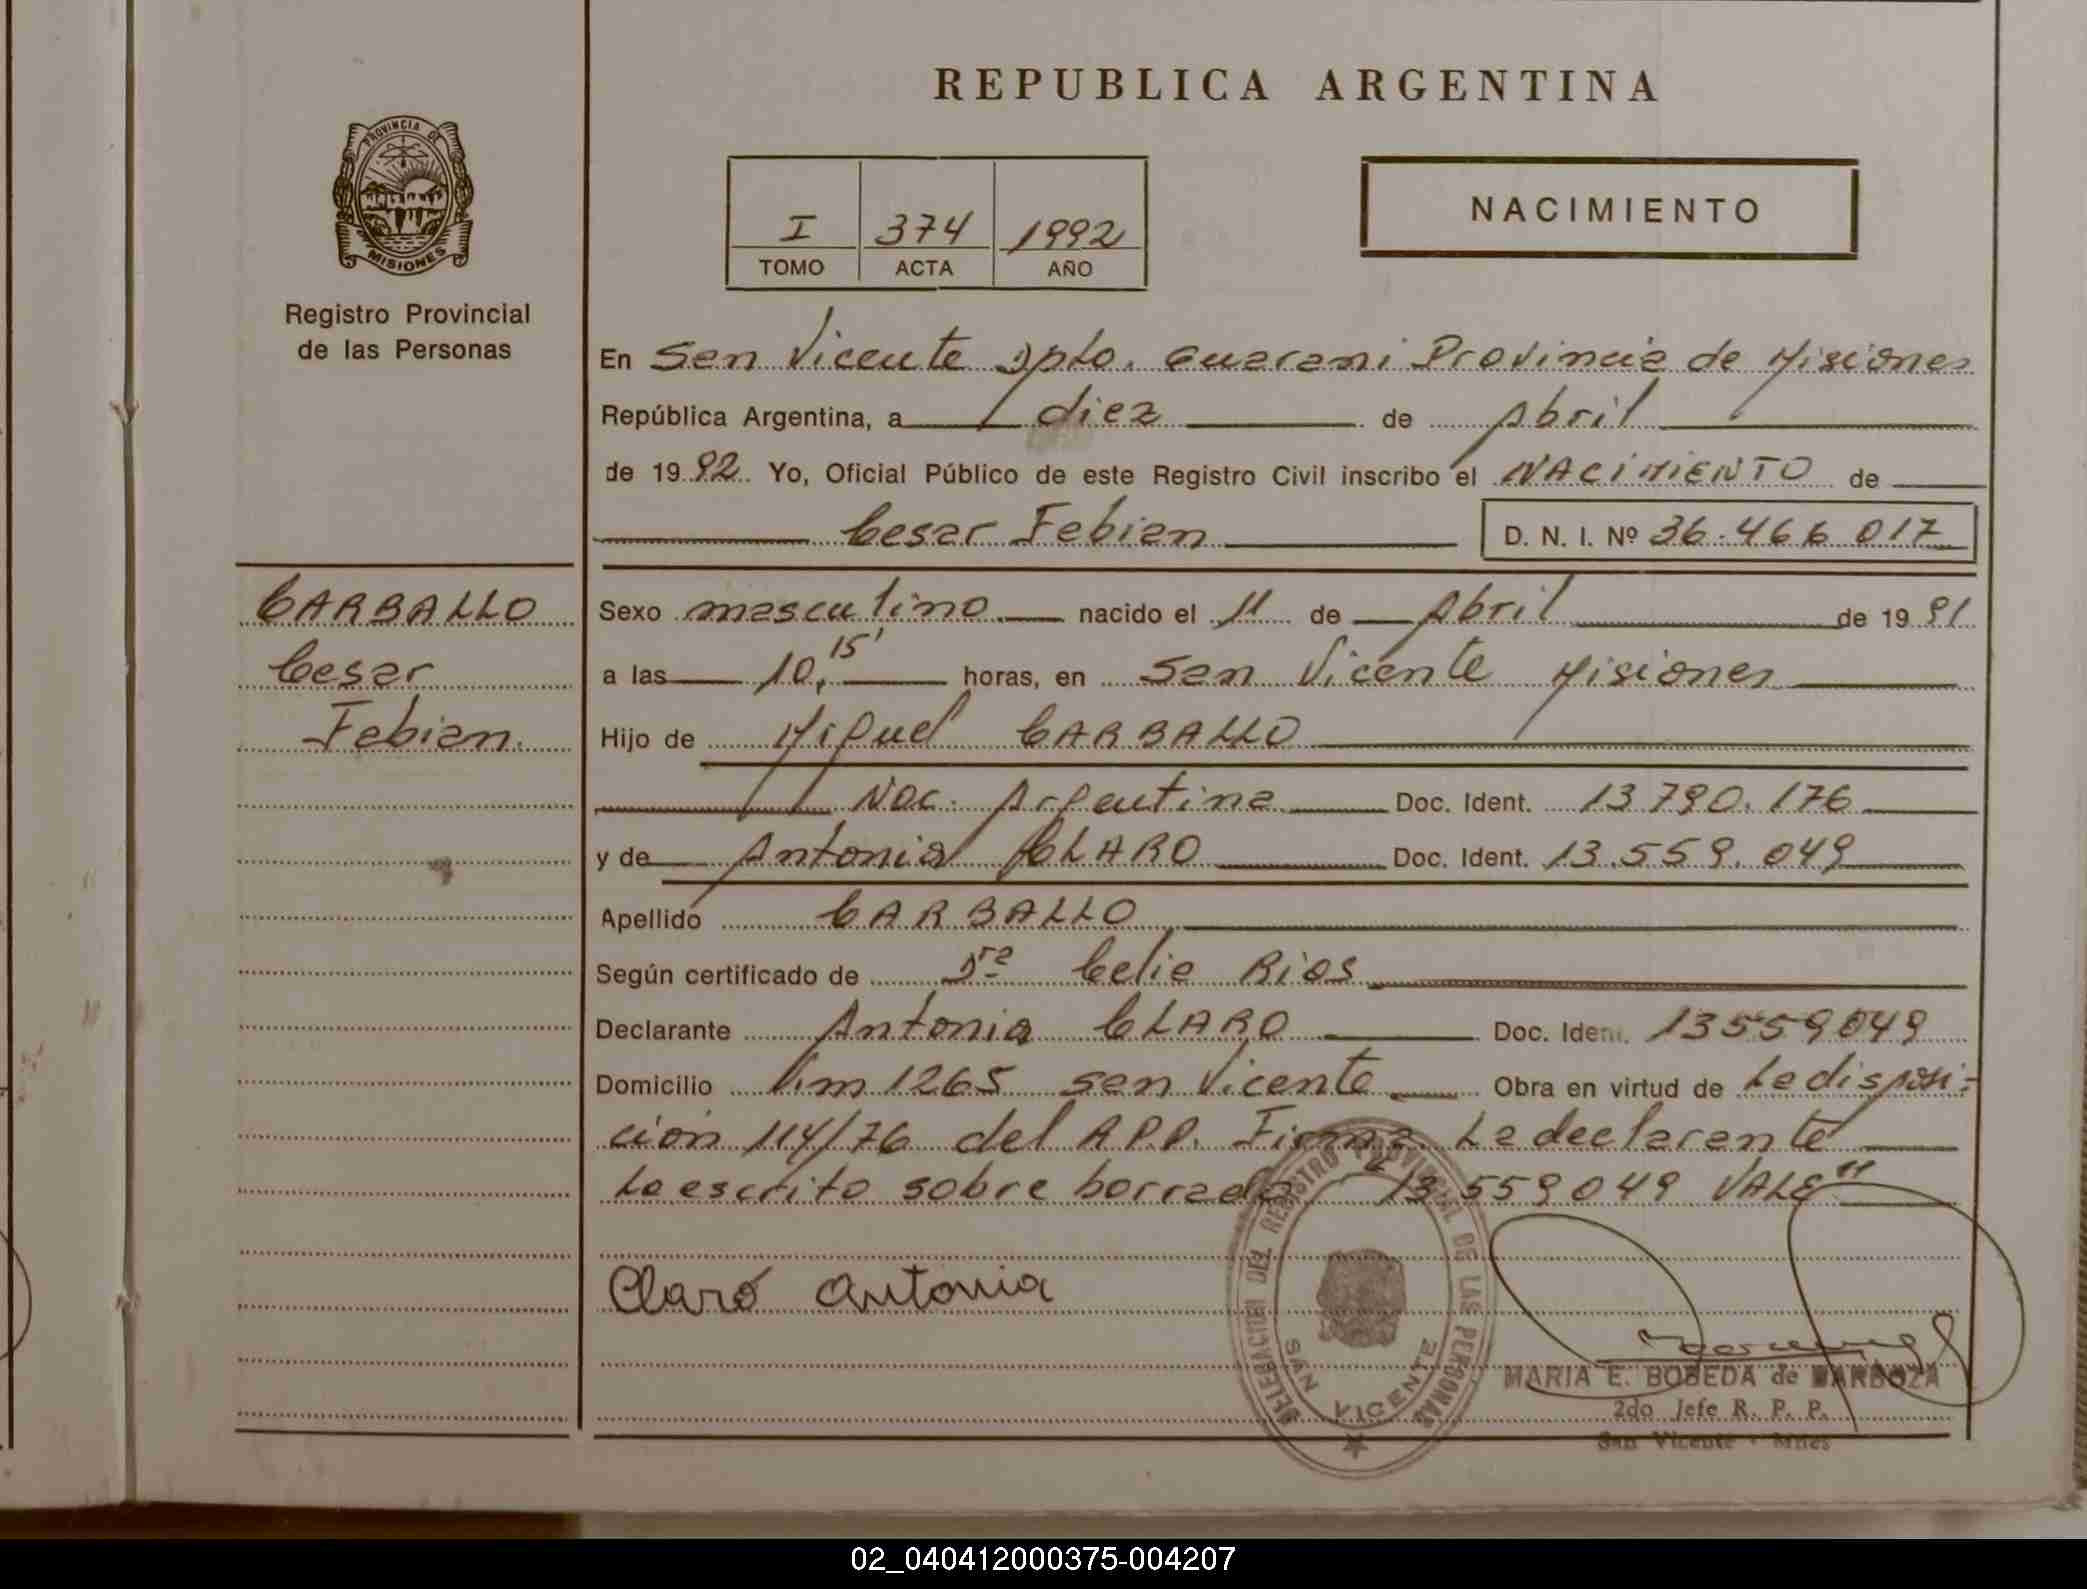 REPUBLICA ARGENTINA
PROVINCIA DE
MISIONES
Registro Provincial
de las Personas
I 374 1992
TOMO ACTA AÑO
NACIMIENTO
En San Vicente Dpto. Guarani Provincia de Misiones
República Argentina, a diez de Abril
de 1992 Yo, Oficial Público de este Registro Civil inscribo el NACIMIENTO de
Cesar Fabian D. N. I. Nº 36.466.017
CARBALLO
Cesar
Fabian.
Sexo masculino nacido el 11 de Abril de 1991
a las 10,15' horas, en San Vicente Misiones
Hijo de Miguel CARBALLO
Nac. Argentina Doc. Ident. 13790.176
y de Antonia CLARO Doc. Ident. 13.559.049
Apellido CARBALLO
Según certificado de Dra Celia Rios
Declarante Antonia CLARO Doc. Ident. 13559049
Domicilio Km 1265 San Vicente Obra en virtud de La disposi-
ción 114/76 del A.P.P. Firma La declarante
Lo escrito sobre borrado "13.559049 VALE"
Claro Antonia
DELEGACION DEL REGISTRO PROVINCIAL DE LAS PERSONAS
SAN VICENTE
MARIA E. BOBEDA de BARBOZA
2do Jefe R. P. P.
San Vicente - Mnes
02_040412000375-004207